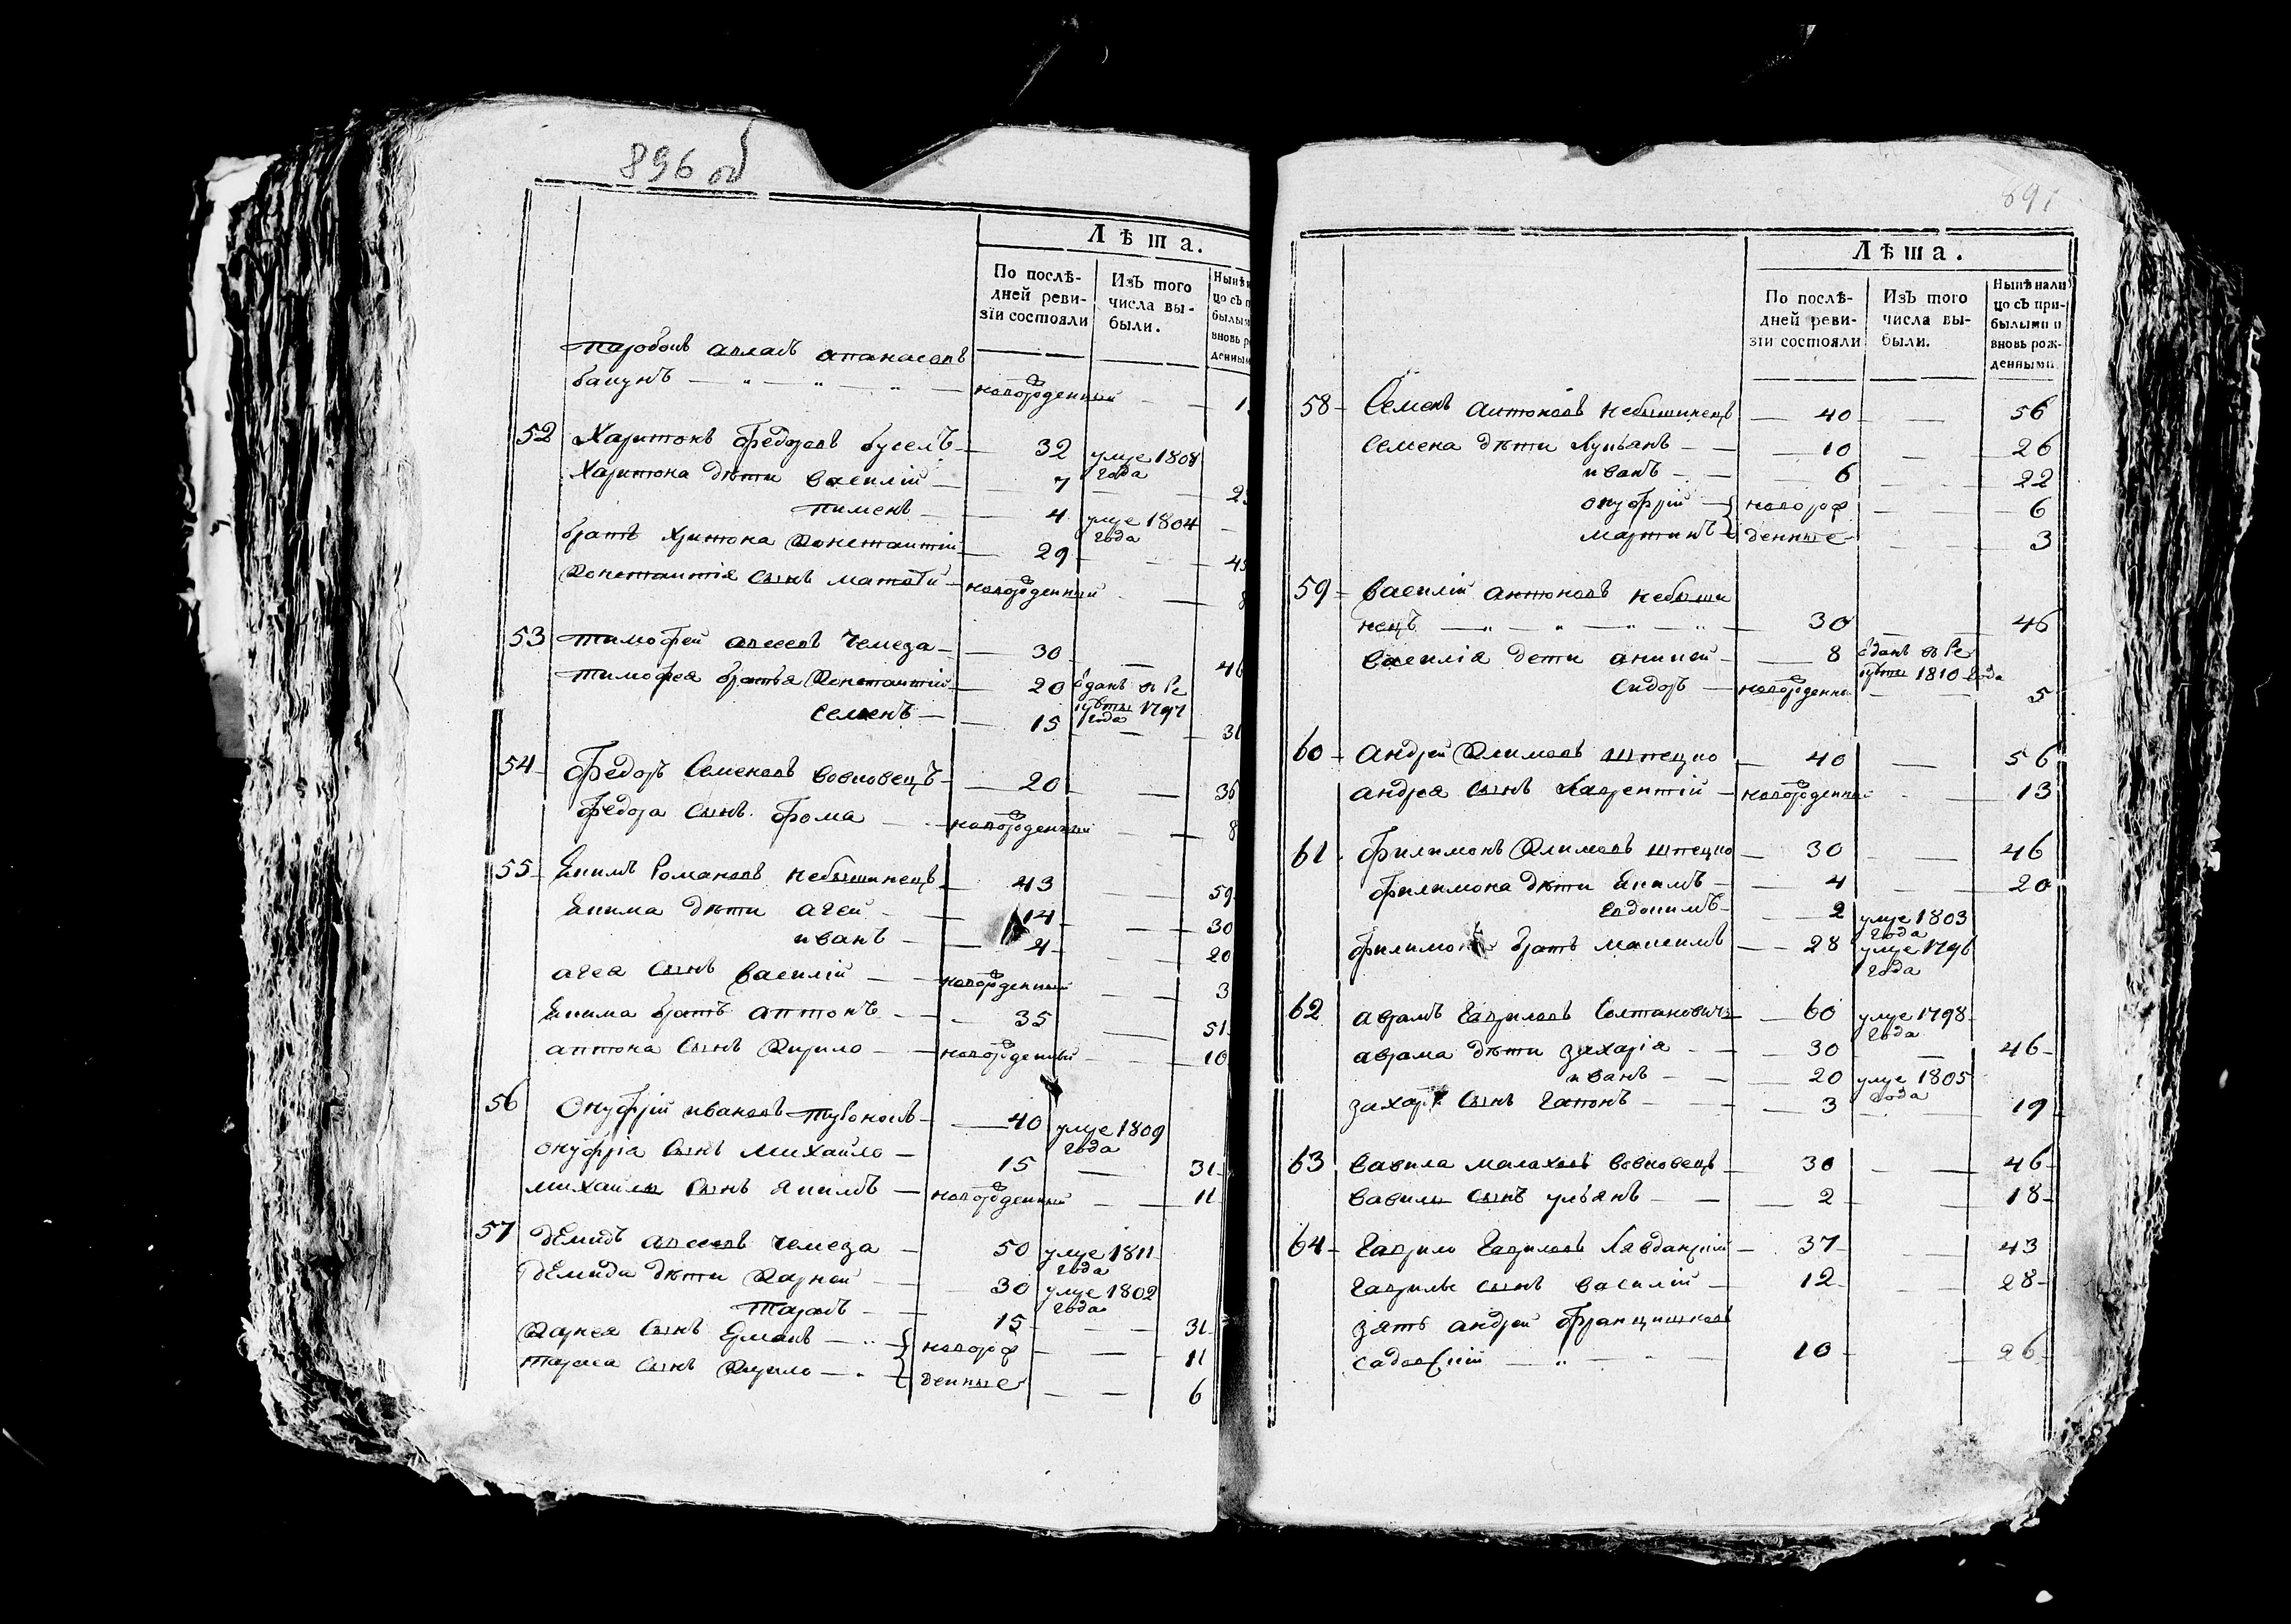 896 об
Лѣта.
По послѣ-
дней реви-
зіи состояли
Изъ того
числа вы-
были.
паробокъ адамъ апанасовъ
бакунъ — „ — „ — „ — новорожденный — —
52 Харитонъ Федоровъ буселъ — 32 умре 1808 года
Харитона дѣти василій — 7 — —
пименъ — 4 умре 1804 года
братъ Хритона Константій — 29 — —
Константія сынъ матвѣй — новорожденный — —
53 тимофей чемеза — 30 —
тимофея братья Константій — 20 отданъ в Рекруты 1797 года
семенъ — 15 — — 31
54 Федоръ Семеновъ вовковецъ — 20 — 36
Федора сынъ фома — новорожденный — — 8
55 Якимъ Романовъ небышинецъ — 43 59
Якима дѣти агей — 14 — — 30
иванъ — 4 — — 20
агея сынъ василій — новорожденный — — 3
Якима братъ антонъ — 35 — 51
антона сынъ Кирило — новорожденный — — 10
56 Онуфрій ивановъ — 40 умре 1809 года
онуфрія сынъ михайло — 15 — 31
михайлы сынъ якимъ — новорожденный — — 11
57 демидъ чемеза — 50 умре 1811 года
демида дѣти Карней — 30 умре 1802 года
тарасъ — 15 — — 31
Карнея сынъ — „ — новорож — — 11
тараса сынъ Кирило — „ — денные — — 6
897
Лѣта.
По послѣ-
дней реви-
зіи состояли
Изъ того
числа вы-
были.
Нынѣ нали
цо съ при-
былыми и
вновь рож-
денными
58 Семенъ антоновъ небышинецъ — 40 — 56
семена дѣти лукьянъ — 10 — 26
иванъ — 6 — 22
онуфрій — новорож — 6
мартинъ — денные — 3
59 василій антоновъ небыши
нецъ — „ — „ — „ — „ — 30 — 46
василія дети аникей — 8 отданъ в Рекруты 1810 года
сидоръ — новорожденны — 5
60 андрей Климовъ штецко — 40 — 56
андрея сынъ лаврентій — новорожденный — 13
61 филимонъ Климовъ штецко — 30 — 46
филимона дѣти якимъ — 4 — 20
евдокимъ — 2 умре 1803 года
филимона братъ максимъ — 28 умре 1796 года
62 аврамъ гавриловъ Солтановичъ — 60 умре 1798 года
аврама дѣти захарія — 30 — 46
иванъ — 20 умре 1805 года
захарія сынъ гапонъ — 3 19
63 вавила малаховъ вовковецъ — 30 — 46
вавилы сынъ ульянъ — 2 — 18
64 гаврило гавриловъ — 37 — 43
гаврилы сынъ василій — 12 — 28
зять андрей францишковъ
садовскій — „ — — 10 — 26